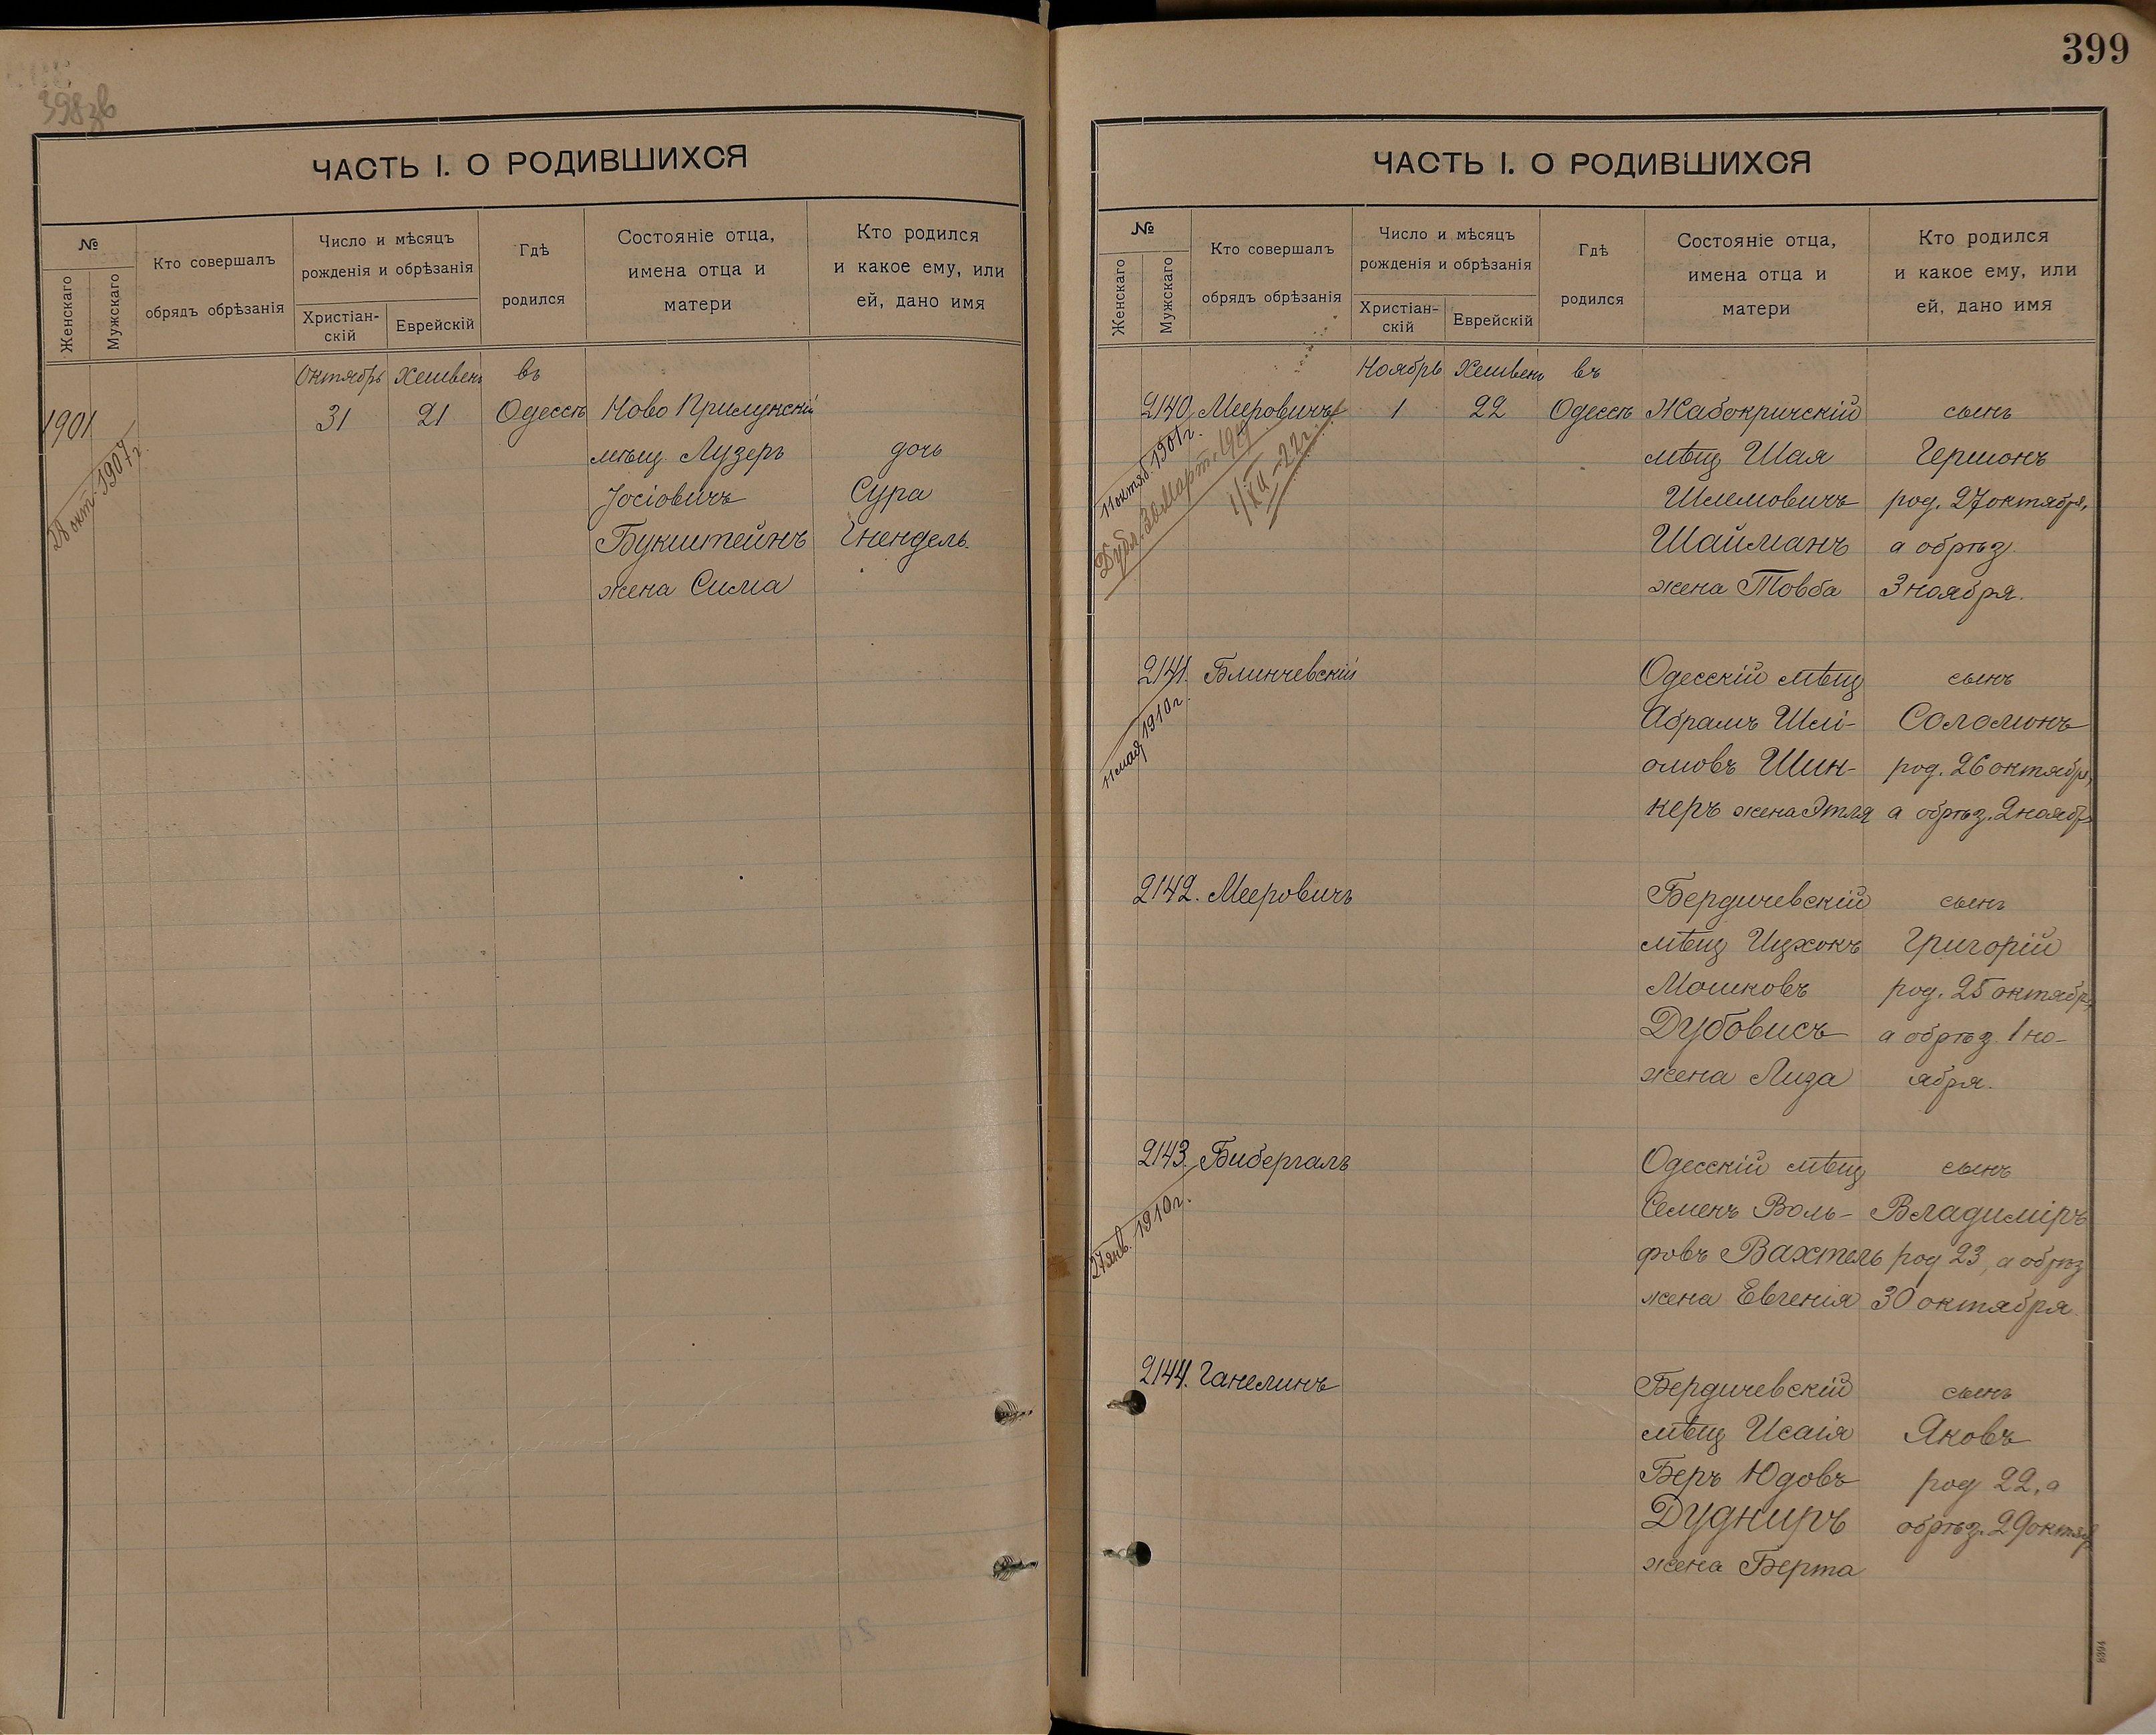 398зв
ЧАСТЬ I. О РОДИВШИХСЯ
№
Женскаго
Мужскаго
Кто совершалъ
обрядъ обрѣзанія
Число и мѣсяцъ
рожденія и обрѣзанія
Христіан-
скій
Еврейскій
Гдѣ
родился
Состояніе отца,
имена отца и
матери
Кто родился
и какое ему, или
ей, дано имя
Октябрь Хешвень въ
1901 31 21 Одессѣ Ново Прилукскій
28 окт. 1907 г.
мѣщ Лузеръ дочь
Іосіовичъ Сура
Букштейнъ Гнендель.
жена Сима
399
ЧАСТЬ I. О РОДИВШИХСЯ
№
Женскаго
Мужскаго
Кто совершалъ
обрядъ обрѣзанія
Число и мѣсяцъ
рожденія и обрѣзанія
Христіан-
скій
Еврейскій
Гдѣ
родился
Состояніе отца,
имена отца и
матери
Кто родился
и какое ему, или
ей, дано имя
Ноябрь Хешвень въ
2140 Мееровичъ 1 22 Одессѣ Жабокричскій сынъ
11 октяб. 1901 г.
Дубл. 30 Март. 1919
1/XII-22 г.
мѣщ Шая Гершонъ
Шлемовичъ род. 27 октября,
Шайманъ а обрѣз.
жена Товба 3 ноября.
2141. Блинчевскій Одесскій мѣщ сынъ
11 мая 1910 г.
Абрамъ Шлі- Соломонъ
омовъ Шин- род. 26 октябр,
керъ жена Этля а обрѣз. 2 нояб
2142. Мееровичъ Бердичевскій сынъ
мѣщ Ицхокъ Григорій
Мошковъ род. 25 октябр,
Дубовисъ а обрѣз. 1 но-
жена Лиза ября.
2143. Бибергалъ Одесскій мѣщ сынъ
27 янв. 1910 г.
Семенъ Воль- Владиміръ
фовъ Вахтель род 23, а обрѣз
жена Евгенія 30 октября
2144. Ганелинъ Бердичевскій сынъ
мѣщ Исаія Яковъ
Беръ Юдовъ род 22, а
Дудниръ обрѣз. 29 октяб
жена Берта